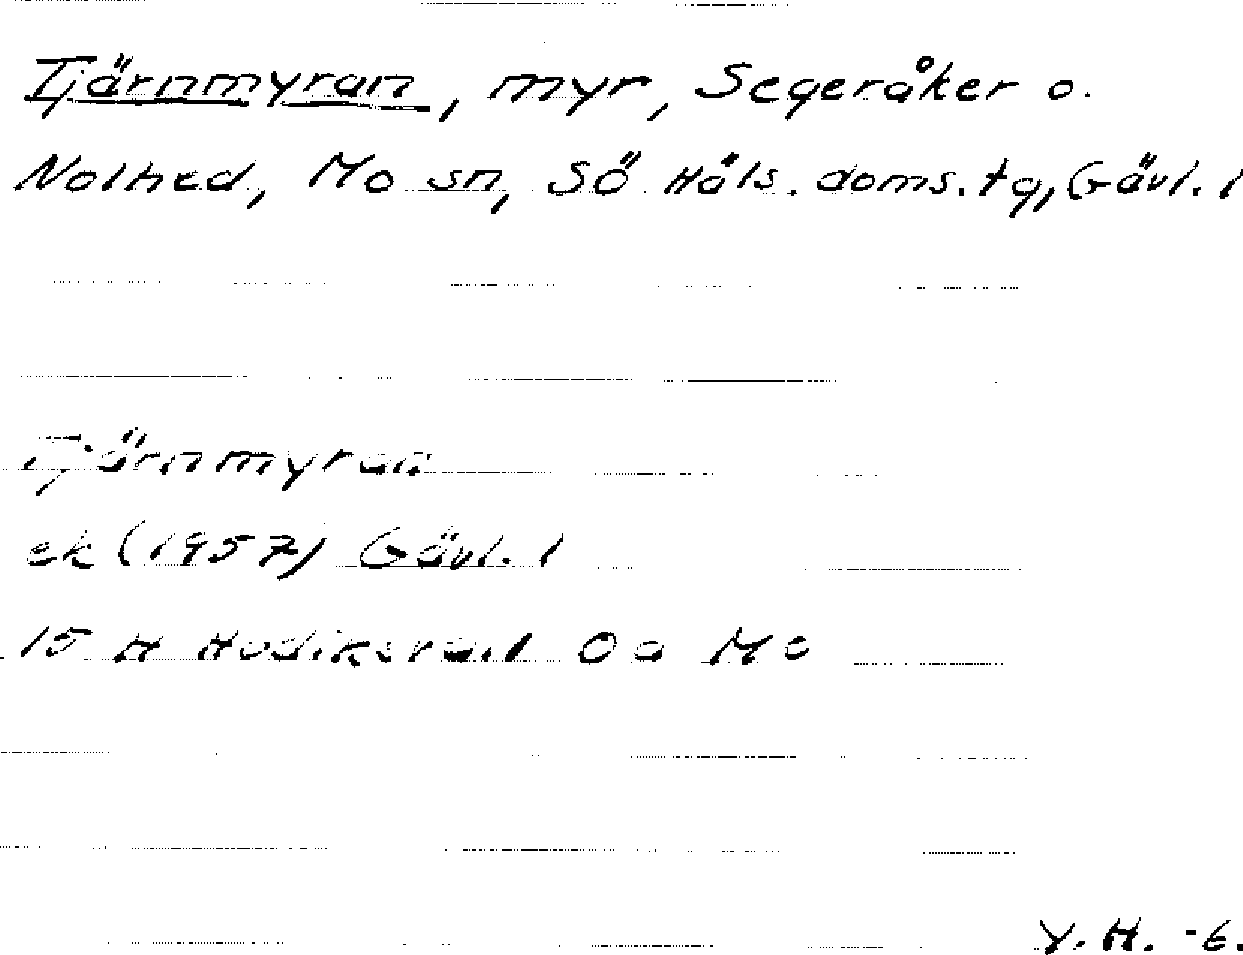 Tjärnmyran, myr, Segeråker o.
Nolhed, Mo sn, Sö Häls. doms. tg, Gävl. l
Tjärnmyran
ek (1957) Gävl. l
15 H Hudiksvall 0a Mo
Y. H. -6.